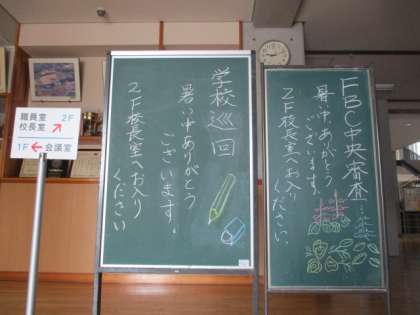 職員室 2F
校長室
1F 会議室
学校巡回
暑い中ありがとう
ございます。
2F校長室へお入り
ください
FBC中央審査
暑い中ありがとう
ございます。
2F校長室へお入り
ください。